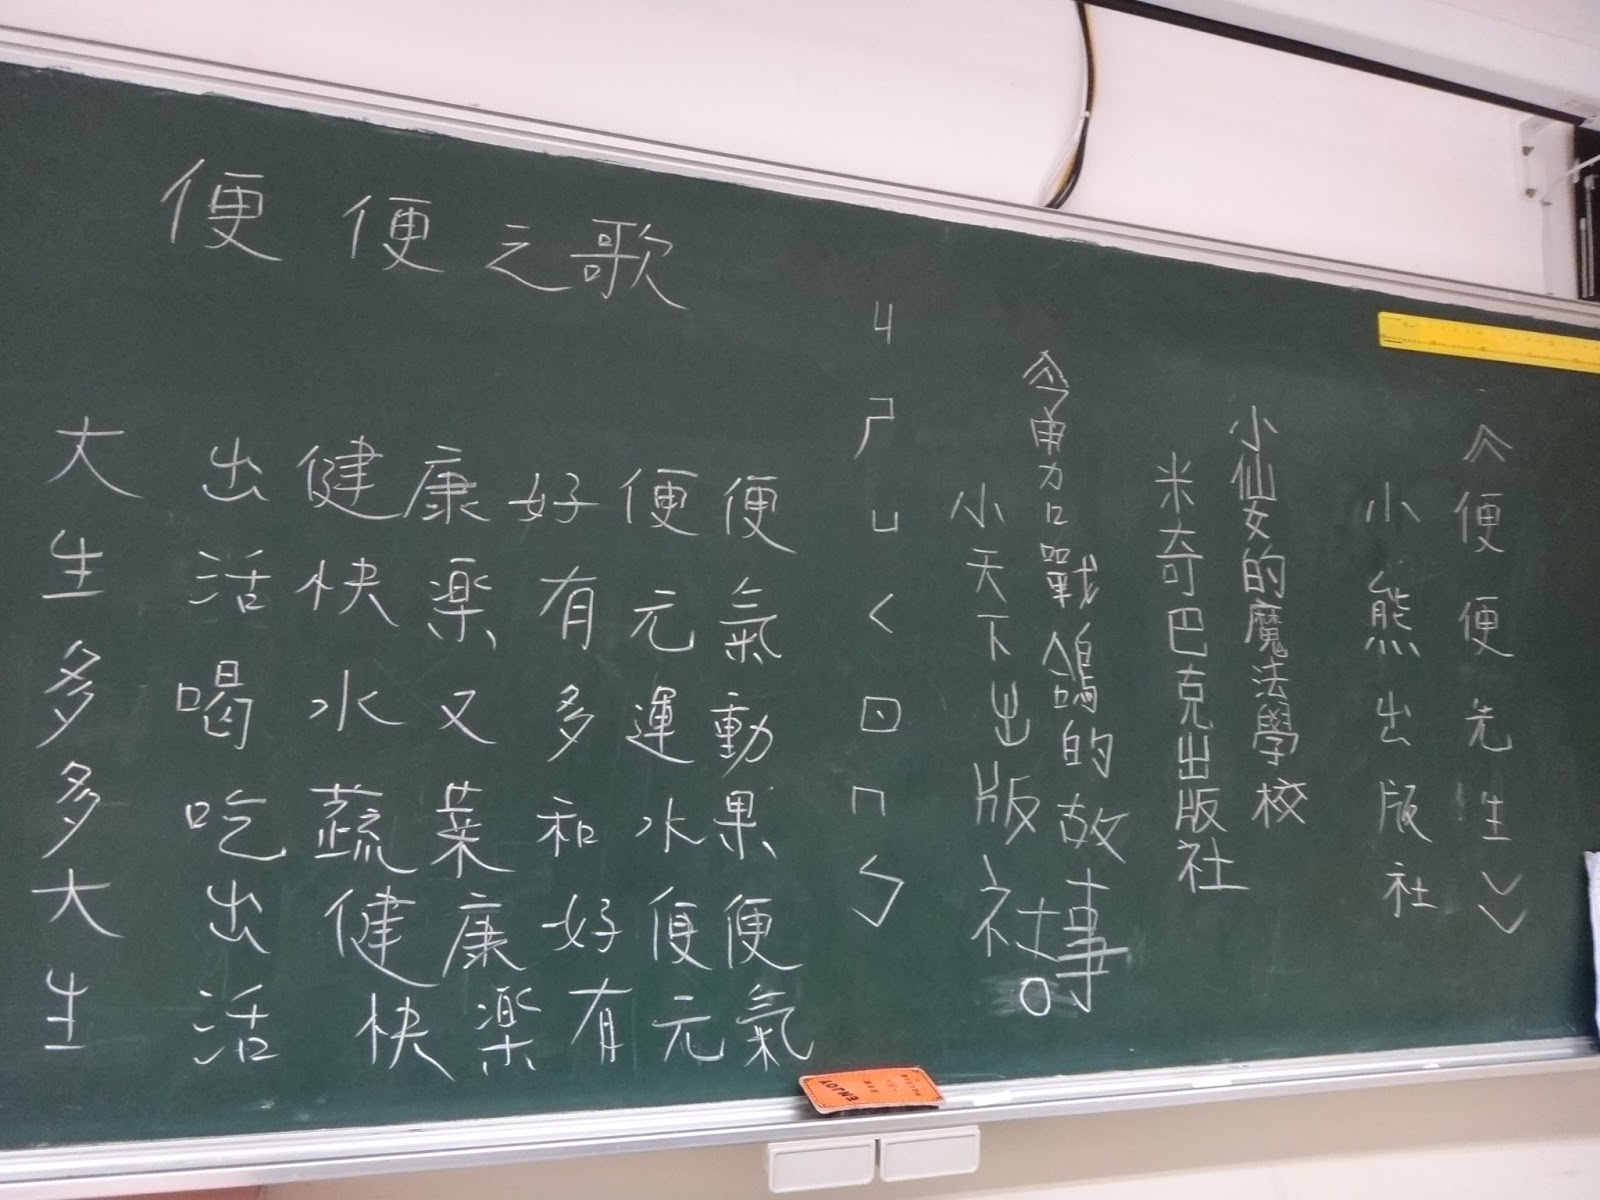 便便之歌
大出健康好便便
生活快楽有元氣
多喝水又多運動
多吃蔬菜和水果
大出健康好便便
生活快楽有元氣
《便便先生》
小熊出版社
小仙女的魔法學校
米奇巴克出版社
戰鴿的故事
小天下出版社。
ㄐㄕㄩㄑㄖㄇㄣ
ENJOY